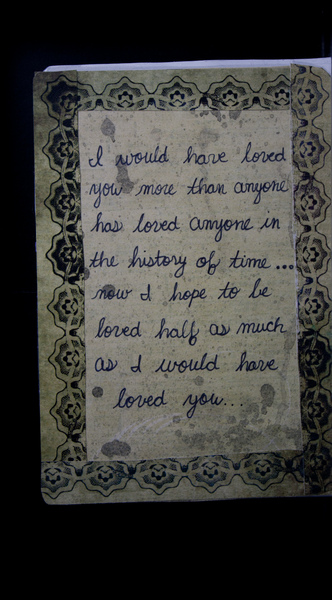 I would have loved
you more than anyone
has loved anyone in
the history of time...
now I hope to be
loved half as much
as I would have
loved you...